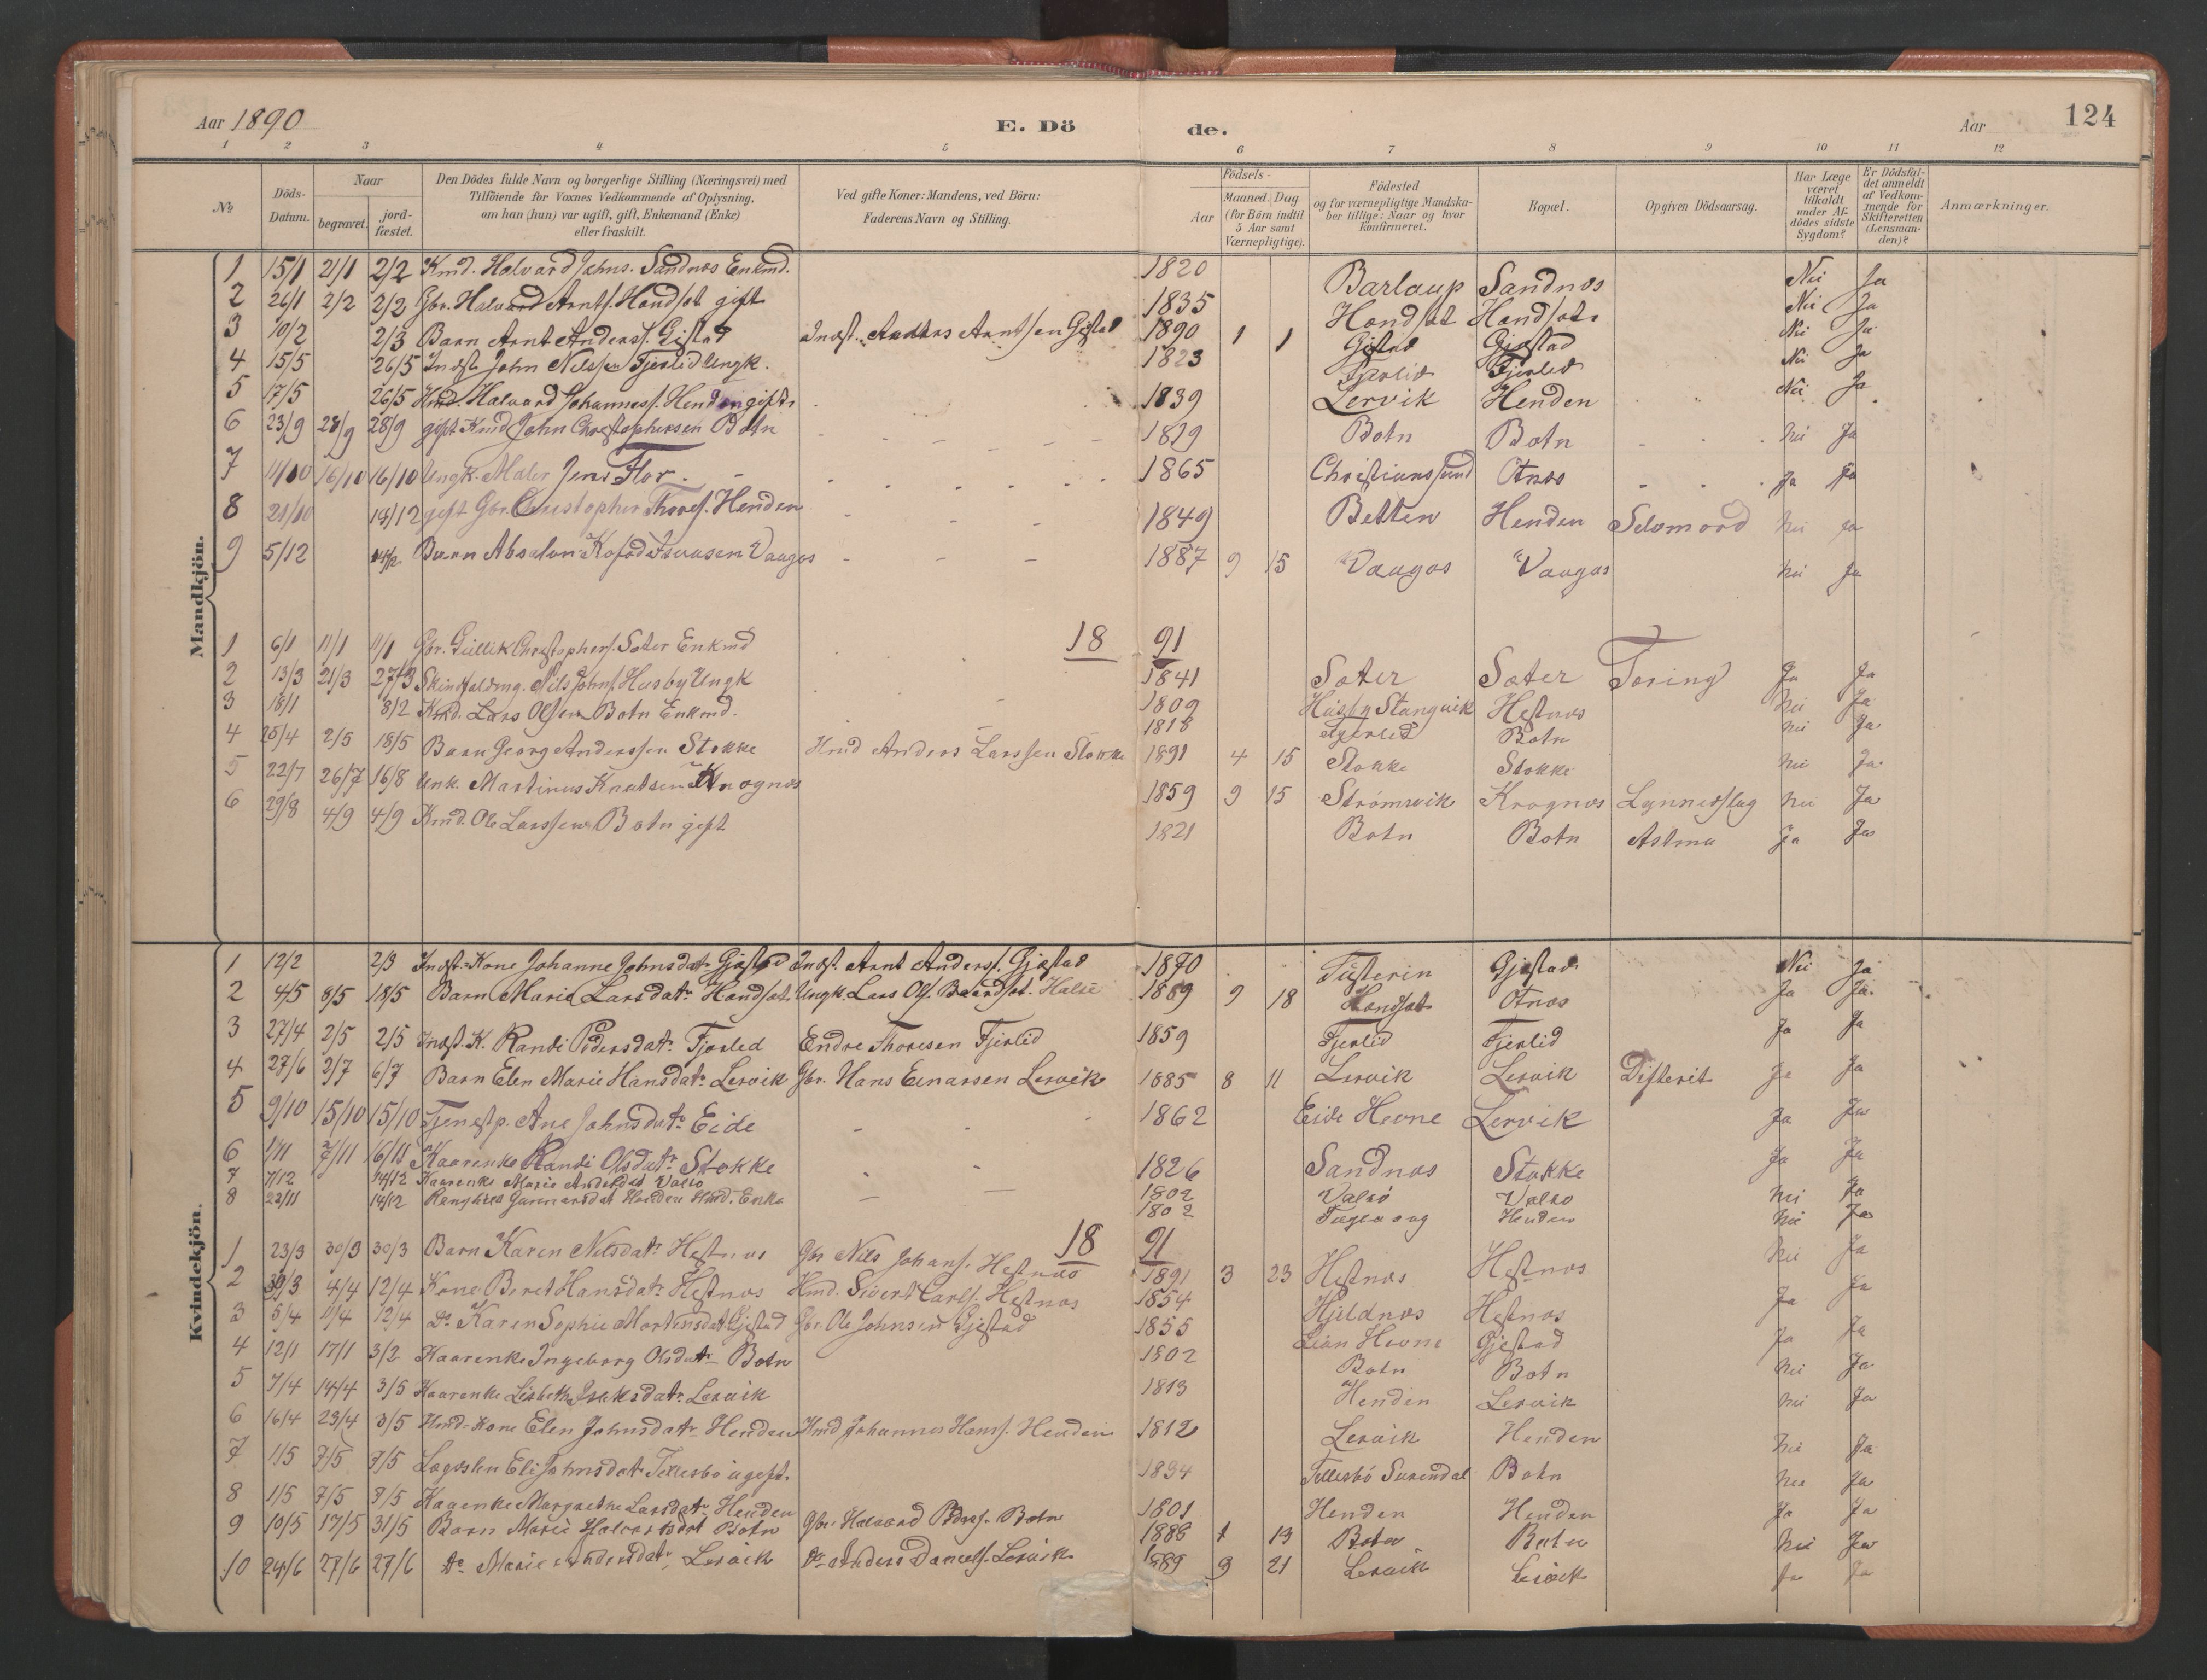 Aar 1890 E. Dö de. Aar 124
1 2 3 4 5 6 7 8 9 10 11 12
No
Döds-Datum.
Naar
begravet.
jord-fæstet.
Den Dödes fulde Navn og borgerlige Stilling (Næringsvei) med
Tilföiende for Voxnes Vedkommende af Oplysning,
om han (hun) var ugift, gift, Enkemand (Enke)
eller fraskilt.
Ved gifte Koner: Mandens, ved Börn:
Faderens Navn og Stilling.
Födsels-
Aar
Maaned. Dag
(for Börn indtil
5 Aar samt
Værnepligtige).
Födested
og for værnepligtige Mandska-
ber tillige: Naar og hvor
konfirmeret.
Bopæl.
Opgiven Dödsaarsag.
Har Læge
været
tilkaldt
under Af-
dödes sidste
Sygdom?
Er Dödsfal-
det anmeldt
af Vedkom-
mende for
Skifteretten
(Lensman-
den)?
Anmærkninger.
Mandkjön.
1 15/1 21/1 2/2 Kmd. Halvard Johns. Sandnes Enkmd. 1820 Barlaup Sandnes Nei Ja
2 24/1 2/2 2/2 Gbr. Halvard Arnts. Hendset gift 1835 Hendset Hendset Nei Ja
3 10/2 2/3 Barn Arnt Anderss. Gjestad Indst. Anders Arntsen Gjestad 1890 1 1 Gjestad Gjestad Nei Ja
4 15/5 26/5 Indst. John Nilssen Fjerlid Ungk. 1823 Fjerlid Fjerlid Nei Ja
5 17/5 26/5 Hmd. Halvard Johanness. Henden gift 1839 Lervik Henden Nei Ja
6 23/9 28/9 28/9 gift Kmd John Christophersen Botn 1819 Botn Botn Nei Ja
7 11/10 16/10 16/10 Ungk. Maler Jens Flor. 1865 Christianssund Otnes Ja Ja
8 21/10 14/12 gift Gbr. Christopher Thores. Henden 1849 Betten Henden Selvmord Nei Ja
9 5/12 14/12 Barn Absalon Vaagos 1887 9 15 Vaagos Vaagos Nei Ja
18 91
1 6/1 11/1 11/1 Gbr. Gullik Christophers. Sæter Enkmd 1841 Sæter Sæter Tæring Ja Ja
2 13/3 21/3 27/3 Nils Johns. Husby Ungk 1809 Husby Stangvik Hestnes Nei Ja
3 18/1 8/2 Kmd. Lars Olsen Botn Enkmd. 1818 Fjerlid Botn Nei Ja
4 25/4 2/5 18/5 Barn Georg Anderssen Stokke Hmd Anders Larssen Stokke 1891 4 15 Stokke Stokke Nei Ja
5 22/7 26/7 16/8 Unk. Martinus Knutsen Krognes 1859 9 15 Strømsvik Krognes Lynnedslag Nei Ja
6 29/8 4/9 4/9 Kmd. Ole Larssen Botn gift 1821 Botn Botn Astma Ja Ja
Kvindekjön.
1 12/2 2/3 Indst. Kone Johanne Johnsdatr Gjestad Indst. Arnt Anderss. Gjestad 1870 Tusterin Gjestad Nei Ja
2 4/5 8/5 18/5 Barn Marie Larsdatr Hendset Ungk. Lars Ols. Halse 1889 9 18 Hendset Otnes Ja Ja
3 27/4 2/5 2/5 Indst. K. Randi Pedersdatr Fjerlid Endre Thoresen Fjerlid 1859 Fjerlid Fjerlid Ja Ja
4 27/6 2/7 6/7 Barn Elen Marie Hansdatr Lervik Gbr. Hans Einarsen Lervik 1885 8 11 Lervik Lervik Difterit Ja Ja
5 9/10 15/10 15/10 Tjenestp. Ane Johnsdatr Eide 1862 Eide Hevne Lervik Ja Ja
6 1/11 7/11 16/11 Kaarenke Randi Olsdatr Stokke 1826 Sandnes Stokke Ja Ja
7 7/12 14/12 Kaarenke Marie Andersdat Valsø 1802 Valsø Valsø Nei Ja
8 22/11 14/12 Gunnarsdat Henden Hmd. Enke 1802 Henden Nei Ja
18 91
1 23/3 30/3 30/3 Barn Karen Nilsdatr Hestnes Gbr Nils Johans. Hestnes 1891 3 23 Hestnes Hestnes Nei Ja
2 30/3 4/4 12/4 Kone Beret Hansdatr Hestnes Hmd. Sivert Carls. Hestnes 1854 Hjeldnes Hestnes Ja Ja
3 5/4 11/4 12/4 Do Karen Sophie Mortensdat Gjestad Gbr. Ole Johnsen Gjestad 1855 Hevne Gjestad Ja Ja
4 12/1 17/1 3/2 Kaarenke Ingeborg Olsdatr Botn 1802 Botn Botn Nei Ja
5 7/4 14/4 3/5 Kaarenke Lisbeth Isaksdatr Lervik 1813 Henden Lervik Nei Ja
6 16/4 23/4 3/5 Hmd. Kone Elen Johnsdatr Henden Hmd Johannes Hans. Henden 1812 Lervik Henden Nei Ja
7 1/5 7/5 9/5 Lægdslm Eli Johnsdatr Tellesbø ugift. 1834 Tellesbø Surendal Botn Nei Ja
8 1/5 7/5 9/5 Kaarenke Margrethe Larsdatr Henden 1801 Henden Henden Ja Ja
9 10/5 17/5 31/5 Barn Marie Halvarsdat Botn Gbr. Halvard Peders. Botn 1888 1 13 Botn Botn Nei Ja
10 24/6 27/6 27/6 do Marie Andersdatr Lervik Do Anders Daniels. Lervik 1889 9 21 Lervik Lervik Ja Ja